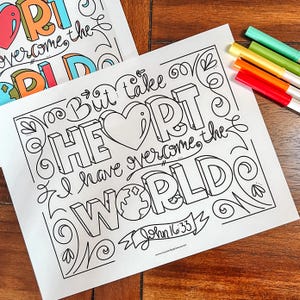 ORT
overcome the
ORLD
But take
HEART
I have overcome the
WORLD
John 16:33